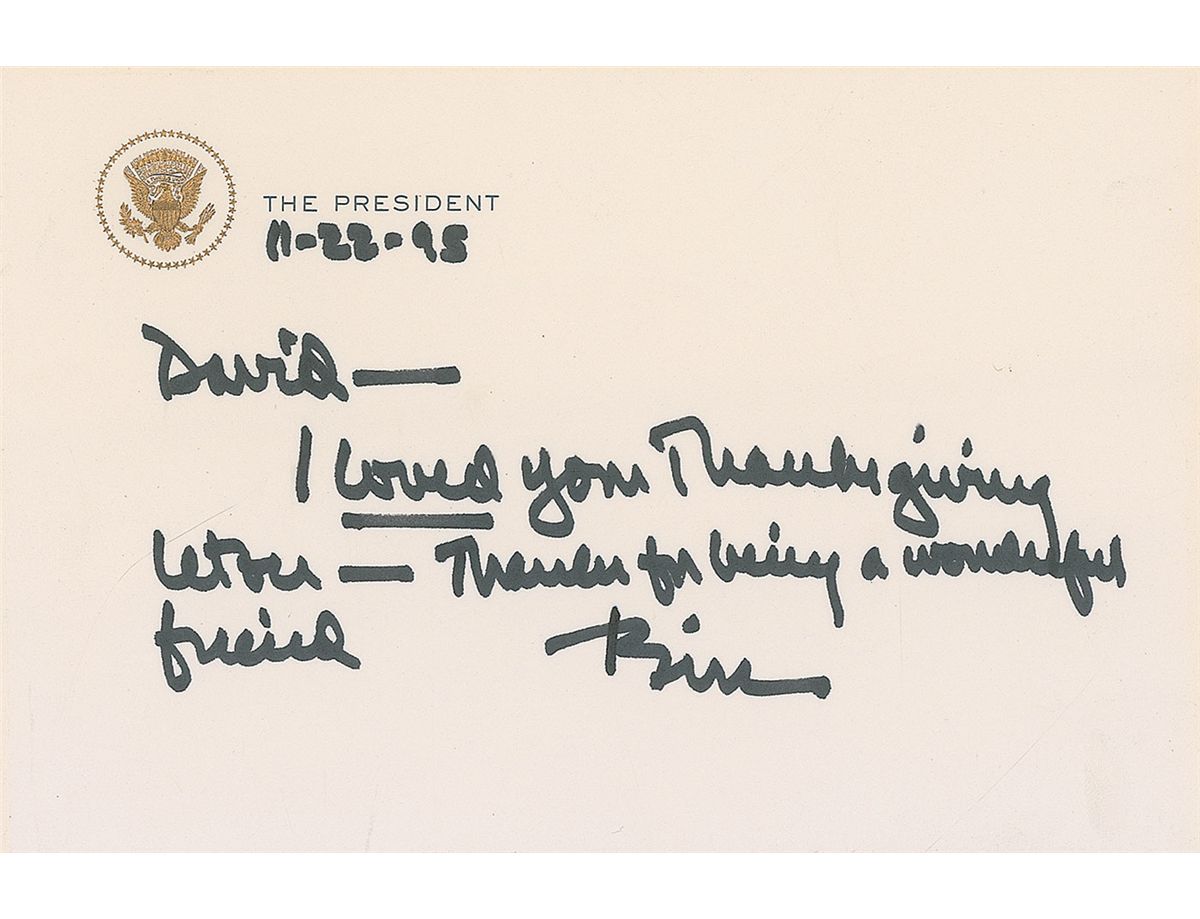 THE PRESIDENT
11-22-95
David—
I loved your Thanksgiving
letter — Thanks for being a wonderful
friend Bill